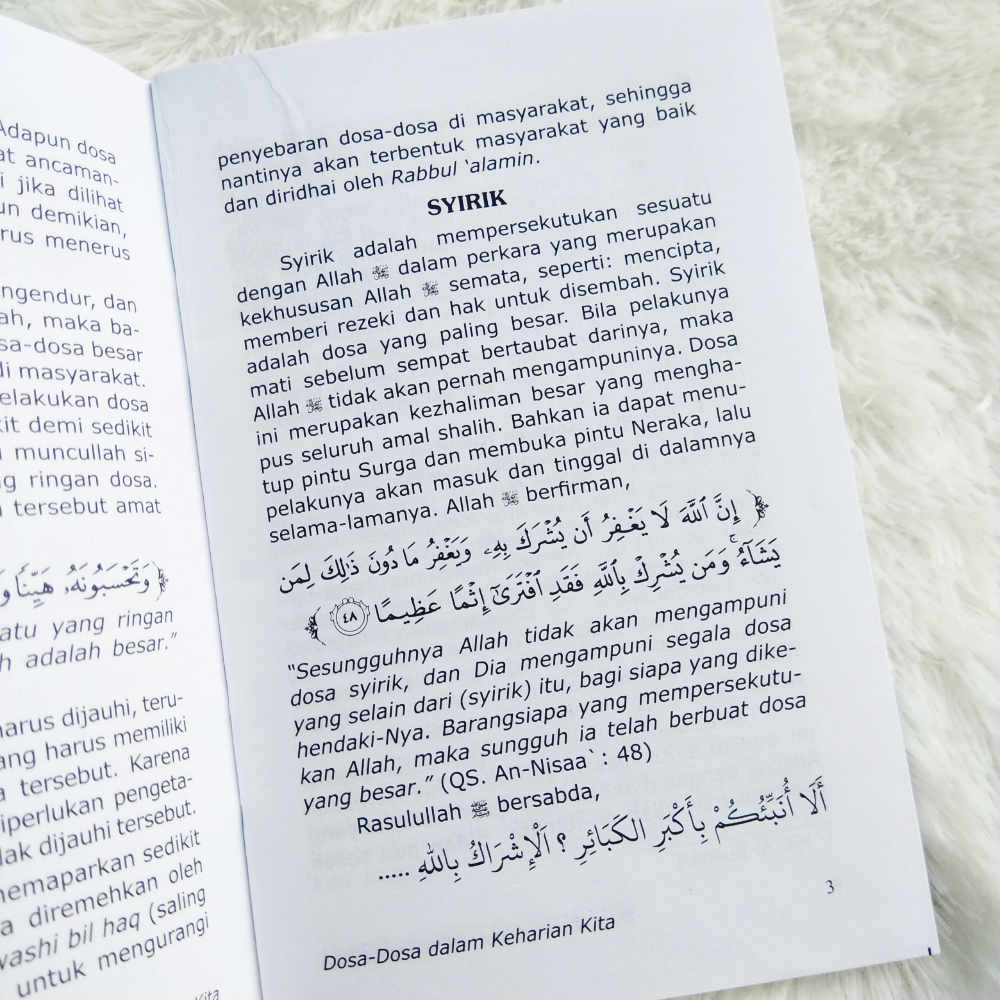 Adapun dosa
at ancaman-
i jika dilihat
un demikian,
rus menerus
ngendur, dan
ah, maka ba-
sa-dosa besar
di masyarakat.
elakukan dosa
kit demi sedikit
muncullah si-
g ringan dosa.
tersebut amat
﴿وَتَحْسَبُونَهُۥ هَيِّنًا وَ
atu yang ringan
h adalah besar.”
harus dijauhi, teru-
ang harus memiliki
a tersebut. Karena
diperlukan pengeta-
dak dijauhi tersebut.
memaparkan sedikit
a diremehkan oleh
washi bil haq (saling
untuk mengurangi
Kita
penyebaran dosa-dosa di masyarakat, sehingga
nantinya akan terbentuk masyarakat yang baik
dan diridhai oleh Rabbul ‘alamin.
SYIRIK
Syirik adalah mempersekutukan sesuatu
dengan Allah ﷻ dalam perkara yang merupakan
kekhususan Allah ﷻ semata, seperti: mencipta,
memberi rezeki dan hak untuk disembah. Syirik
adalah dosa yang paling besar. Bila pelakunya
mati sebelum sempat bertaubat darinya, maka
Allah ﷻ tidak akan pernah mengampuninya. Dosa
ini merupakan kezhaliman besar yang mengha-
pus seluruh amal shalih. Bahkan ia dapat menu-
tup pintu Surga dan membuka pintu Neraka, lalu
pelakunya akan masuk dan tinggal di dalamnya
selama-lamanya. Allah ﷻ berfirman,
﴿إِنَّ ٱللَّهَ لَا يَغْفِرُ أَن يُشْرَكَ بِهِۦ وَيَغْفِرُ مَا دُونَ ذَٰلِكَ لِمَن
يَشَآءُ ۚ وَمَن يُشْرِكْ بِٱللَّهِ فَقَدِ ٱفْتَرَىٰٓ إِثْمًا عَظِيمًا ٤٨﴾
“Sesungguhnya Allah tidak akan mengampuni
dosa syirik, dan Dia mengampuni segala dosa
yang selain dari (syirik) itu, bagi siapa yang dike-
hendaki-Nya. Barangsiapa yang mempersekutu-
kan Allah, maka sungguh ia telah berbuat dosa
yang besar.” (QS. An-Nisaa` : 48)
Rasulullah ﷺ bersabda,
أَلَا أُنَبِّئُكُمْ بِأَكْبَرِ الْكَبَائِرِ ؟ اَلْإِشْرَاكُ بِاللهِ .....
3
Dosa-Dosa dalam Keharian Kita